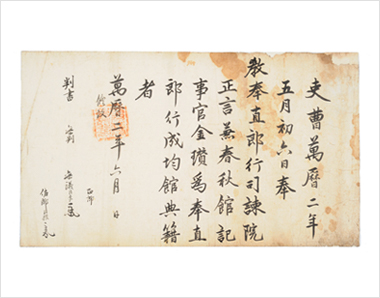 吏曹萬曆二年
五月初六日奉
教奉直郎行司諫院
正言兼春秋館記
事官金瓚爲奉直
郎行成均館典籍
者
萬曆二年六月 日
判書